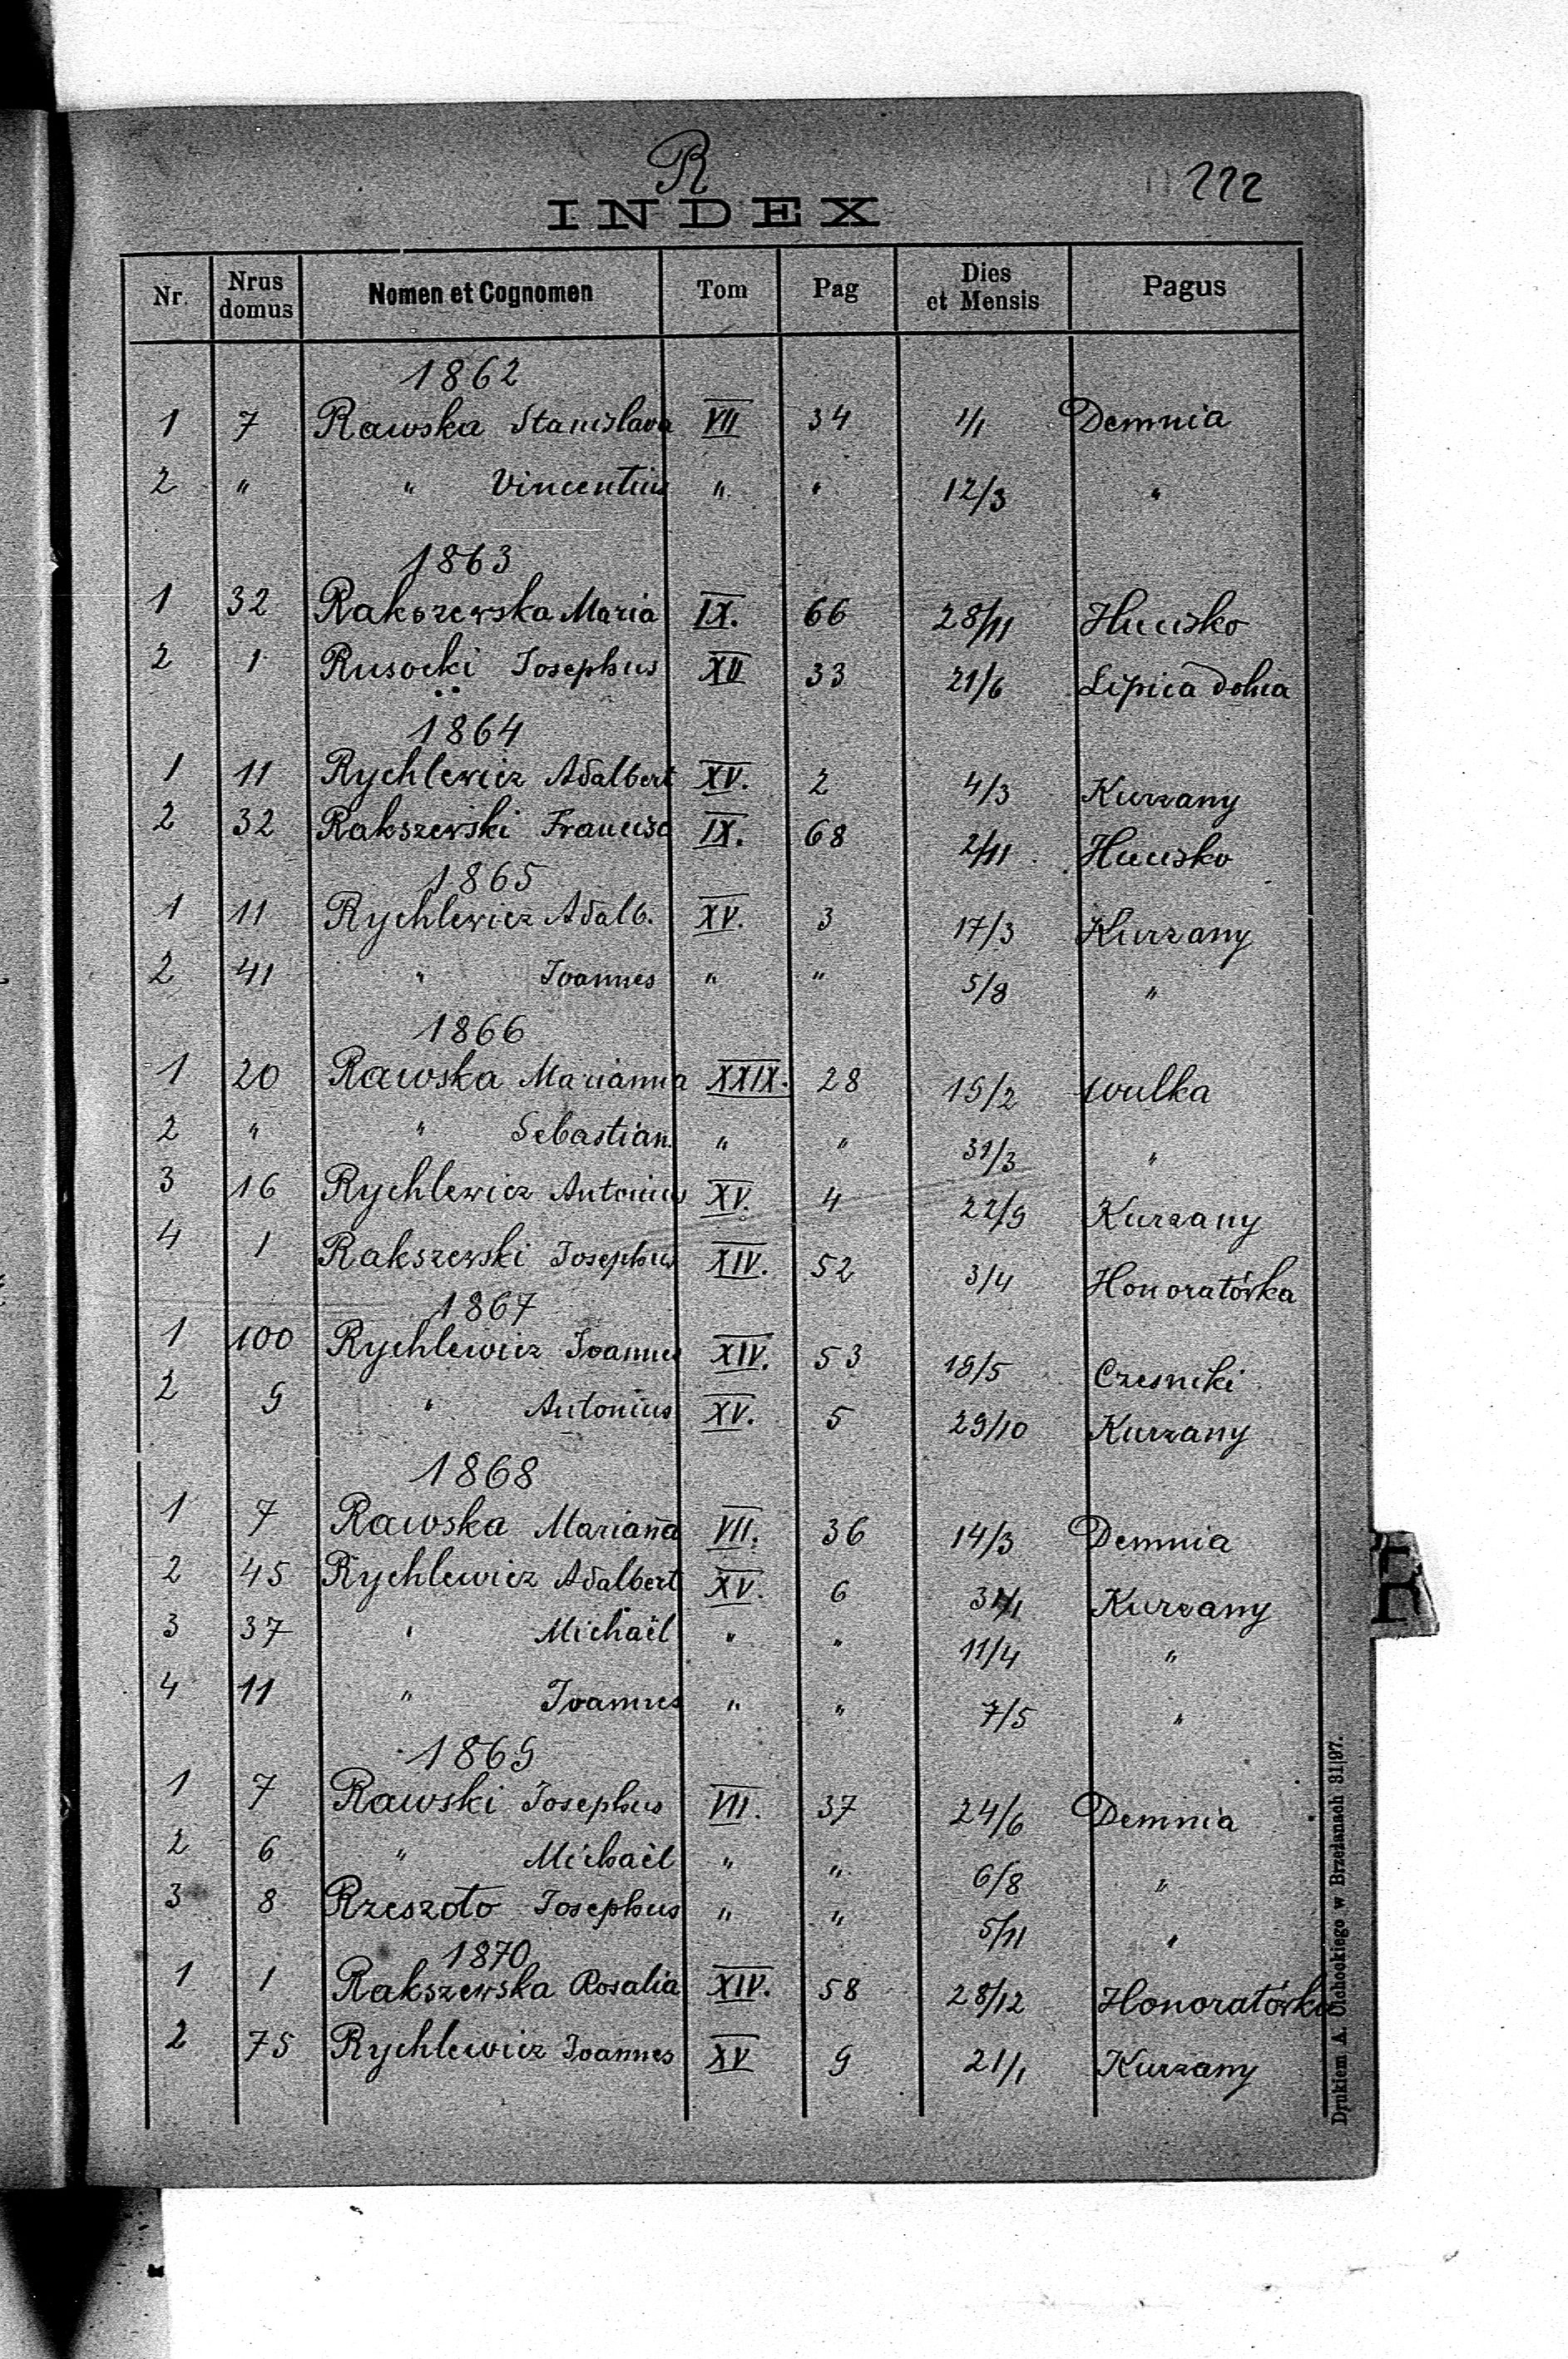 R
INDEX
222
Nr. Nrus domus Nomen et Cognomen Tom Pag Dies et Mensis Pagus
1862
1 7 Rawska Stanislava VII 34 1/1 Demnia
2 " " Vincentius " " 12/3 "
1863
1 32 Rakszewska Maria IX. 66 28/11 Hucisko
2 1 Rusocki Josephus XII 33 21/6 Lipica dolna
1864
1 11 Rychlewicz Adalbert XV. 2 4/3 Kurzany
2 32 Rakszewski Francisc IX. 68 2/11 Hucisko
1865
1 11 Rychlewicz Adalb. XV. 3 17/3 Kurzany
2 41 " Joannes " " 5/8 "
1866
1 20 Rawska Marianna XXIX. 28 15/2 Wulka
2 " " Sebastian. " " 31/3 "
3 16 Rychlewicz Antonius XV. 4 22/9 Kurzany
4 1 Rakszewski Josephus XIV. 52 3/4 Honoratówka
1867
1 100 Rychlewicz Joannes XIV. 53 19/5 Czesniki
2 9 " Antonius XV. 5 29/10 Kurzany
1868
1 7 Rawska Mariana VII. 36 14/3 Demnia
2 45 Rychlewicz Adalbert XV. 6 31/1 Kurzany
3 37 " Michaël " " 11/4 "
4 11 " Joannes " " 7/5 "
1869
1 7 Rawski Josephus VII. 37 24/6 Demnia
2 6 " Michaël " " 6/8 "
3 8 Rzeszoto Josephus " " 5/11 "
1870
1 1 Rakszewska Rosalia XIV. 58 28/12 Honoratówka
2 75 Rychlewicz Joannes XV 9 21/1 Kurzany
R
Drukiem A. Cichockiego w Brzeżanach 31|97.